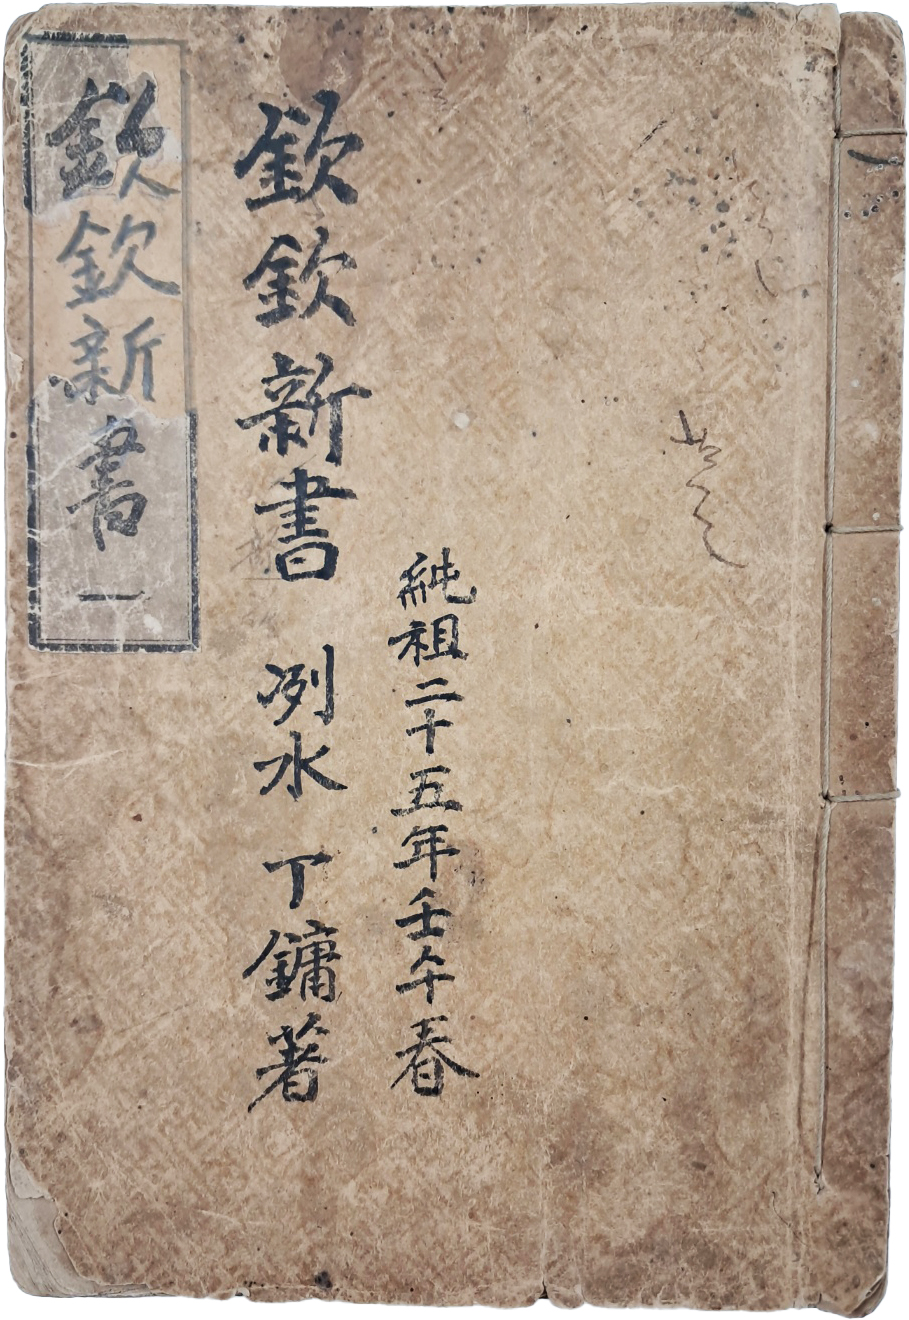 純祖二十五年壬午春
欽欽新書 冽水 丁鏞著
欽欽新書 一